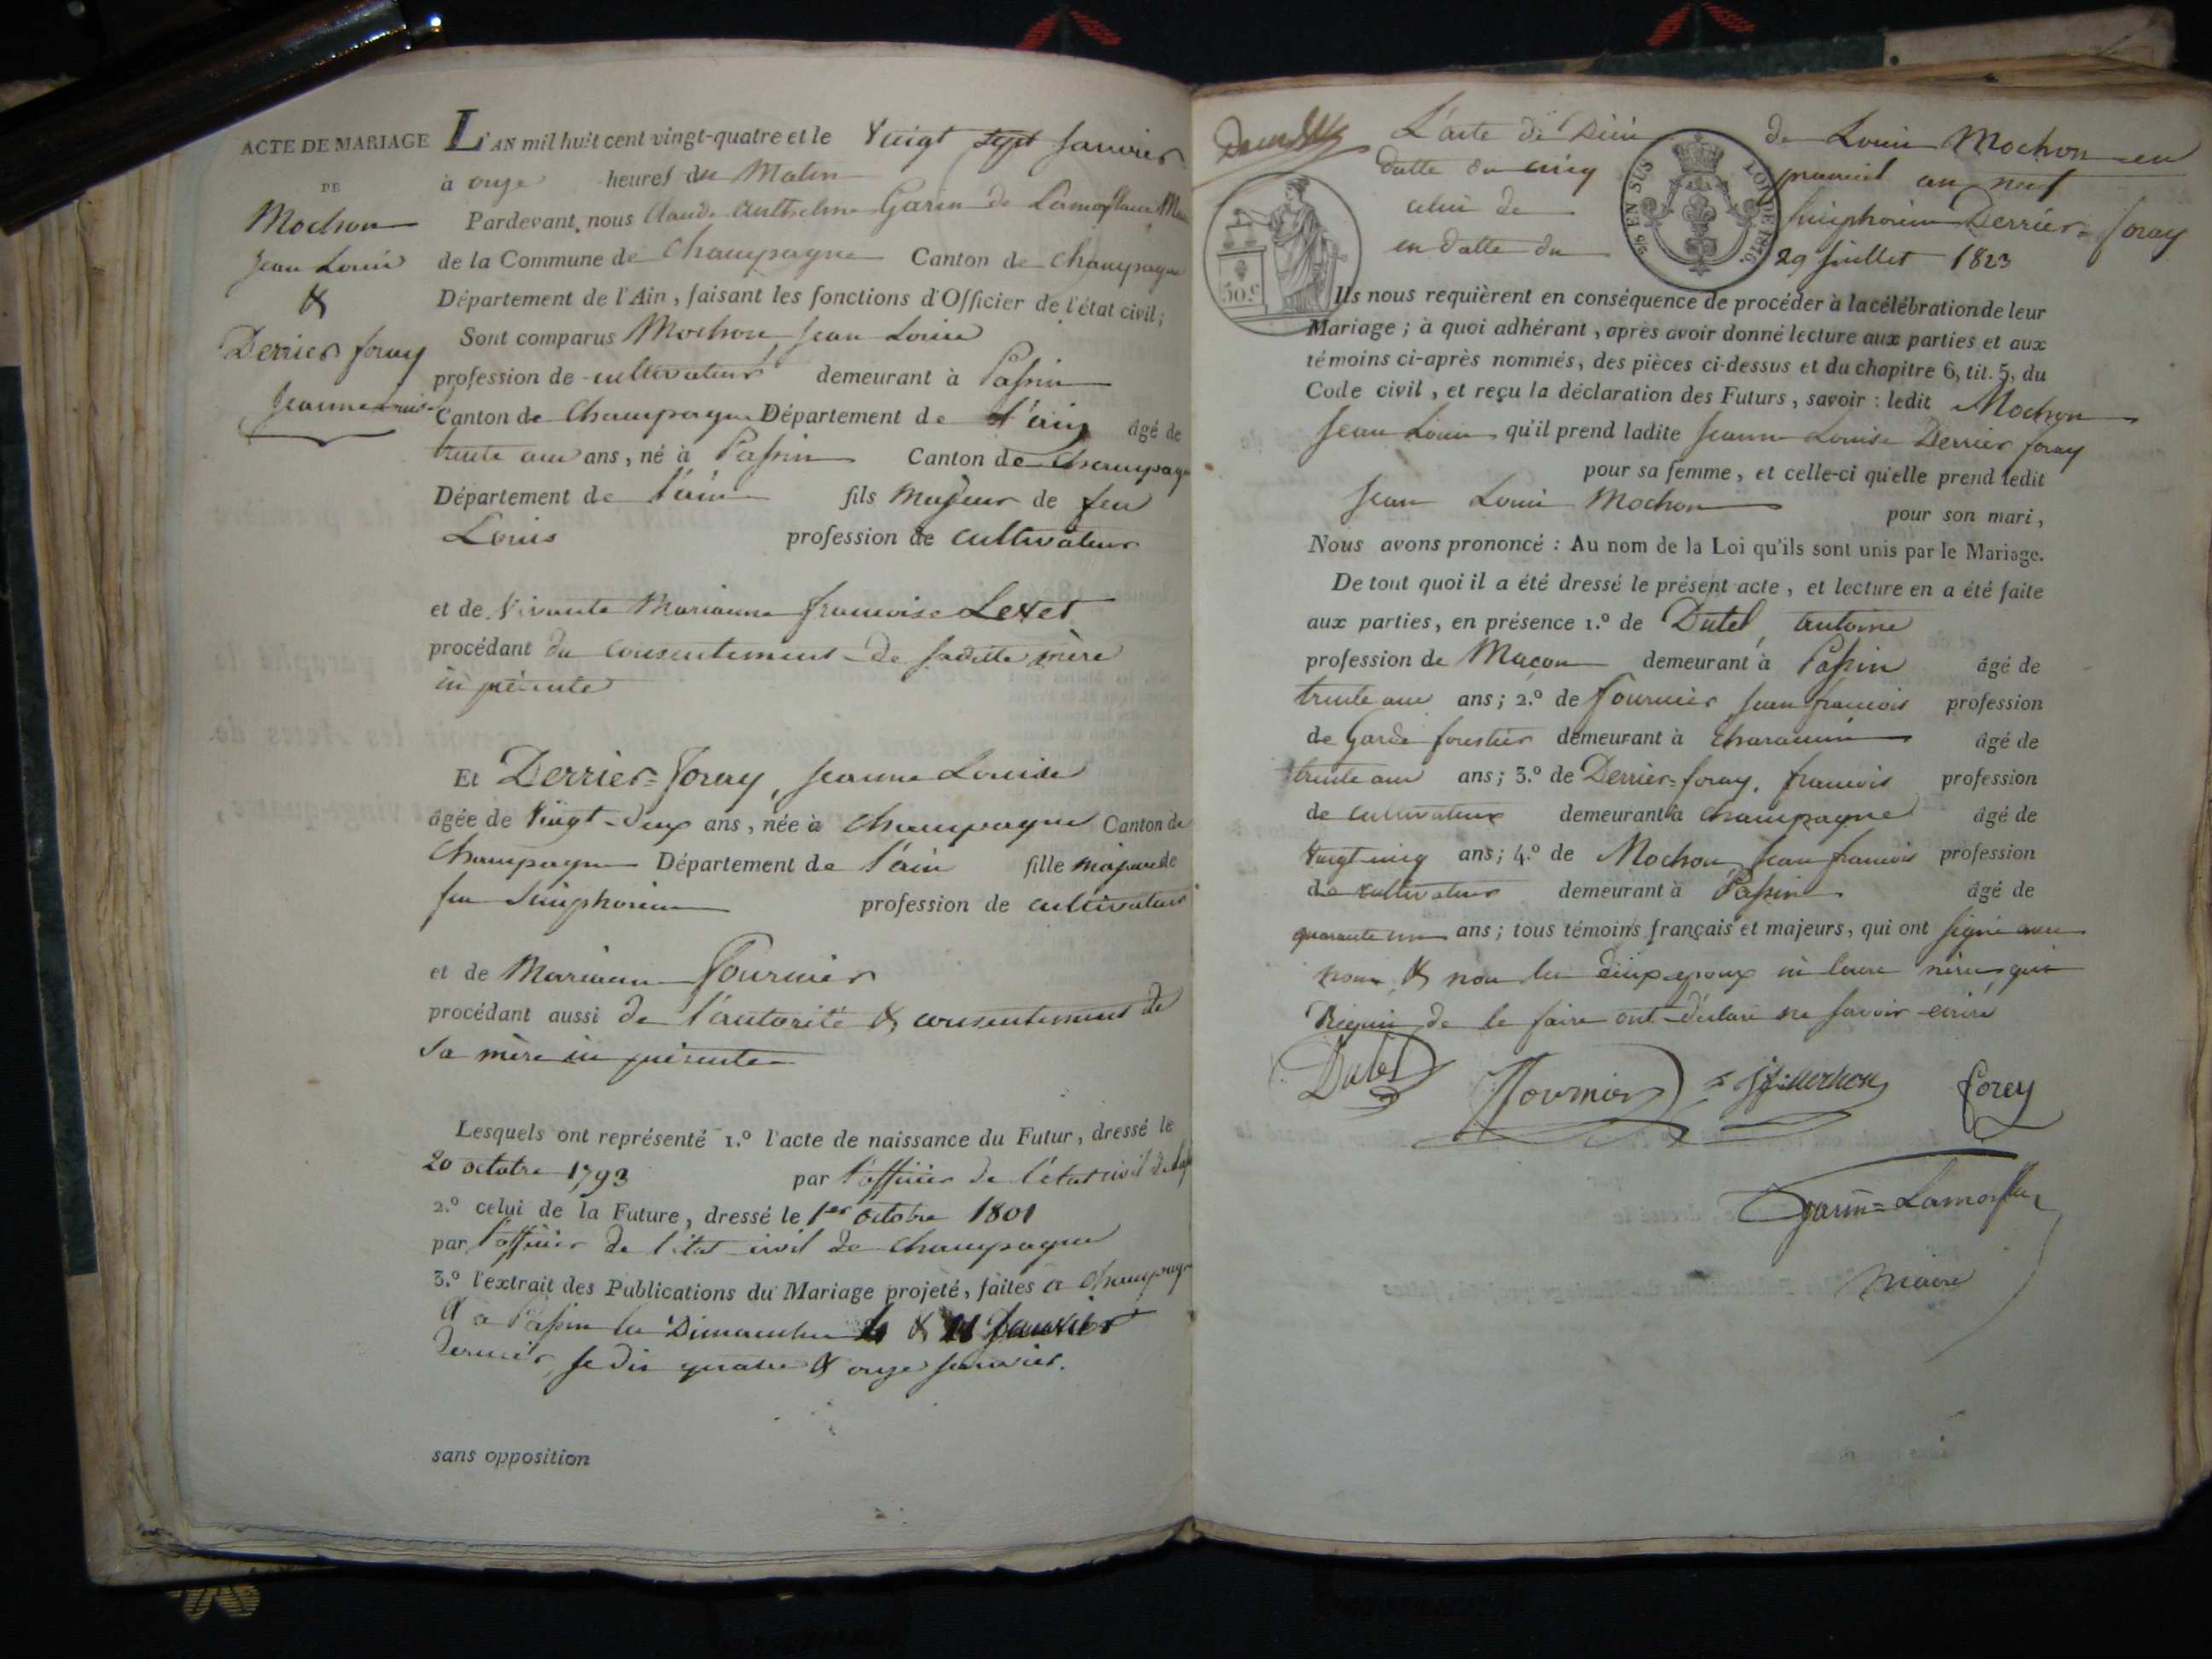 ACTE DE MARIAGE
DE
Mochon
Jean Louis
&
Derrier foray
Jeanne Louise
L'AN mil huit cent vingt-quatre et le Vingt sept Janvier
à onze heures du Matin
Pardevant nous Claude Anthelme Garin de Lamorflanc Maire
de la Commune de Champagne Canton de Champagne
Département de l'Ain, faisant les fonctions d'Officier de l'état civil;
Sont comparus Mochon, Jean Louis
profession de cultivateur demeurant à Passin
Canton de Champagne Département de l'ain âgé de
trente ans, né à Passin Canton de Champagne
Département de l'ain fils Majeur de feu
Louis profession de cultivateur
et de Vivante Marianne françoise Lexet
procédant du consentement de sadite mère
ici présente
Et Derrier=foray, Jeanne Louise
âgée de Vingt-deux ans, née à Champagne Canton de
Champagne Département de l'ain fille majeure de
feu Simphorien profession de cultivateur
et de Marianne Fournier
procédant aussi de l'autorité & consentement de
Sa mère ici présente
Lesquels ont représenté 1.º l'acte de naissance du Futur, dressé le
20 octobre 1793 par l'officier de l'état civil de
2.º celui de la Future, dressé le 1er octobre 1801
par l'officier de l'état civil de Champagne
3.º l'extrait des Publications du Mariage projeté, faites à Champagne
& à Passin les Dimanches 4 & 11 Janvier
dernier, je dis quatre & onze janvier.
sans opposition
L'acte de Décè de Louis Mochon en
datte du cinq prairial an neuf
celui de Simphorien Derrier=foray
en datte du 29 Juillet 1823
50.c
25 EN SUS
LOI DE 1816.
Ils nous requièrent en conséquence de procéder à la célébration de leur
Mariage; à quoi adhérant, après avoir donné lecture aux parties et aux
témoins ci-après nommés, des pièces ci-dessus et du chapitre 6, tit. 5, du
Code civil, et reçu la déclaration des Futurs, savoir: ledit Mochon
Jean Louis qu'il prend ladite Jeanne Louise Derrier foray
pour sa femme, et celle-ci qu'elle prend ledit
Jean Louis Mochon pour son mari,
Nous avons prononcé: Au nom de la Loi qu'ils sont unis par le Mariage.
De tout quoi il a été dressé le présent acte, et lecture en a été faite
aux parties, en présence 1.º de Dutel, Antoine
profession de Maçon demeurant à Passin âgé de
trente ans; 2.º de fournier Jean françois profession
de Garde forestier demeurant à Charancin âgé de
trente ans; 3.º de Derrier=foray, françois profession
de cultivateur demeurant à Champagne âgé de
Vingt cinq ans; 4.º de Mochon, Jean françois profession
de cultivateur demeurant à Passin âgé de
quarante un ans; tous témoins français et majeurs, qui ont signé avec
nous, & non les deux epoux ni leurs mères, qui
Requis de le faire ont déclaré ne savoir ecrire
Dutel fournier forey
Garin=Lamorflan
Maire